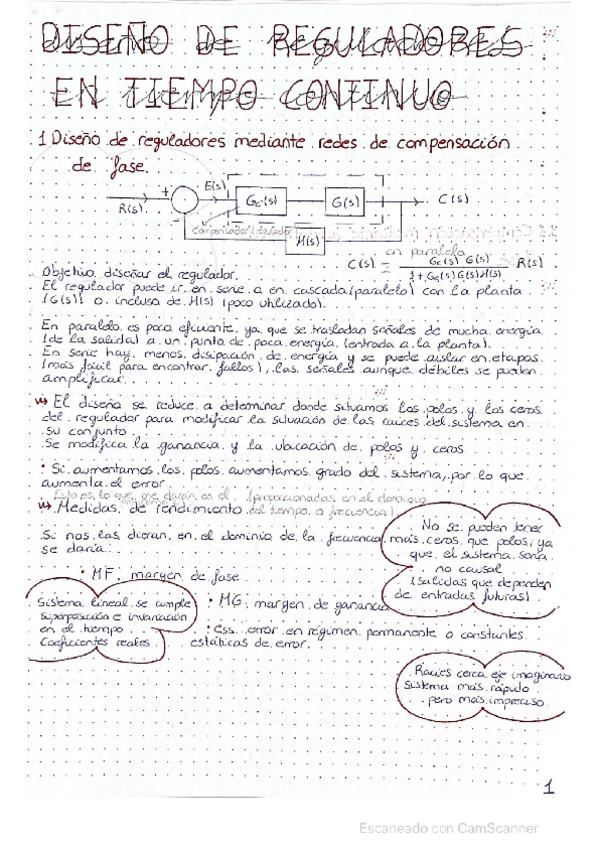 DISEÑO DE REGULADORES
EN TIEMPO CONTINUO
1 Diseño de reguladores mediante redes de compensación
de fase.
R(s) + E(s) Gc(s) G(s) C(s)
-
compensador/regulador
H(s)
en paralelo
C(s) = Gc(s) G(s) / 1 + Gc(s) G(s) H(s) R(s)
Objetivo diseñar el regulador.
El regulador puede ir en serie o en cascada (paralelo) con la planta
(G(s)) o incluso de H(s) (poco utilizado).
En paralelo es poco eficiente ya que se trasladan señales de mucha energía
(de la salida) a un punto de poca energía (entrada a la planta).
En serie hay menos disipación de energía y se puede aislar en etapas
(más fácil para encontrar fallos), las señales aunque débiles se pueden
amplificar.
El diseño se reduce a determinar donde situamos los polos y los ceros
del regulador para modificar la situación de las raíces del sistema en
su conjunto
Se modifica la ganancia y la ubicación de polos y ceros
· Si aumentamos los polos aumentamos grado del sistema, por lo que
aumenta el error
Esto es lo que me darán en el (proporcionadas en el dominio
Medidas de rendimiento del tiempo o frecuencia)
Si nos las dieran en el dominio de la frecuencia
se daría:
No se pueden tener
más ceros que polos, ya
que el sistema sería
no causal
(salidas que dependen
de entradas futuras)
· MF: margen de fase
· MG: margen de ganancia
· Ess: error en régimen permanente o constantes
estáticas de error.
Sistema lineal se cumple
superposición e invariación
en el tiempo
Coeficientes reales
Raíces cerca eje imaginario
sistema más rápido
pero más impreciso
1
Escaneado con CamScanner